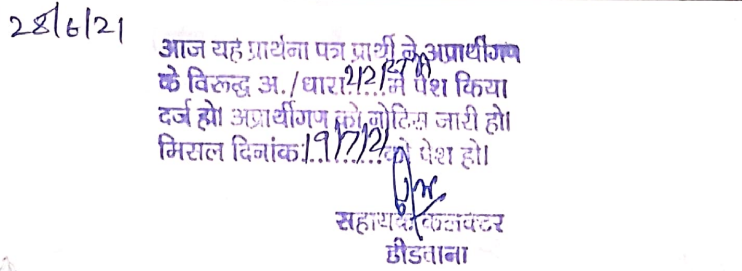 28/6/21
आज यह प्रार्थना पत्र प्रार्थी ने अप्रार्थीगण
के विरूद्ध अ./धारा 212 में पेश किया
दर्ज हो। अप्रार्थीगण को नोटिस जारी हो।
मिसल दिनांक 19/7/21 को पेश हो।
सहायक कलक्टर
डीडवाना